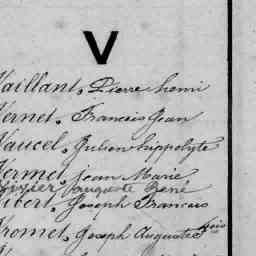 V
Vaillant, Pierre henri
Vernet, Francois Jean
Vaucel, Julien hippolyte
Vermet, jean Marie
Vizier, auguste René
Vibert, Joseph Francois
Vromet, Joseph Auguste